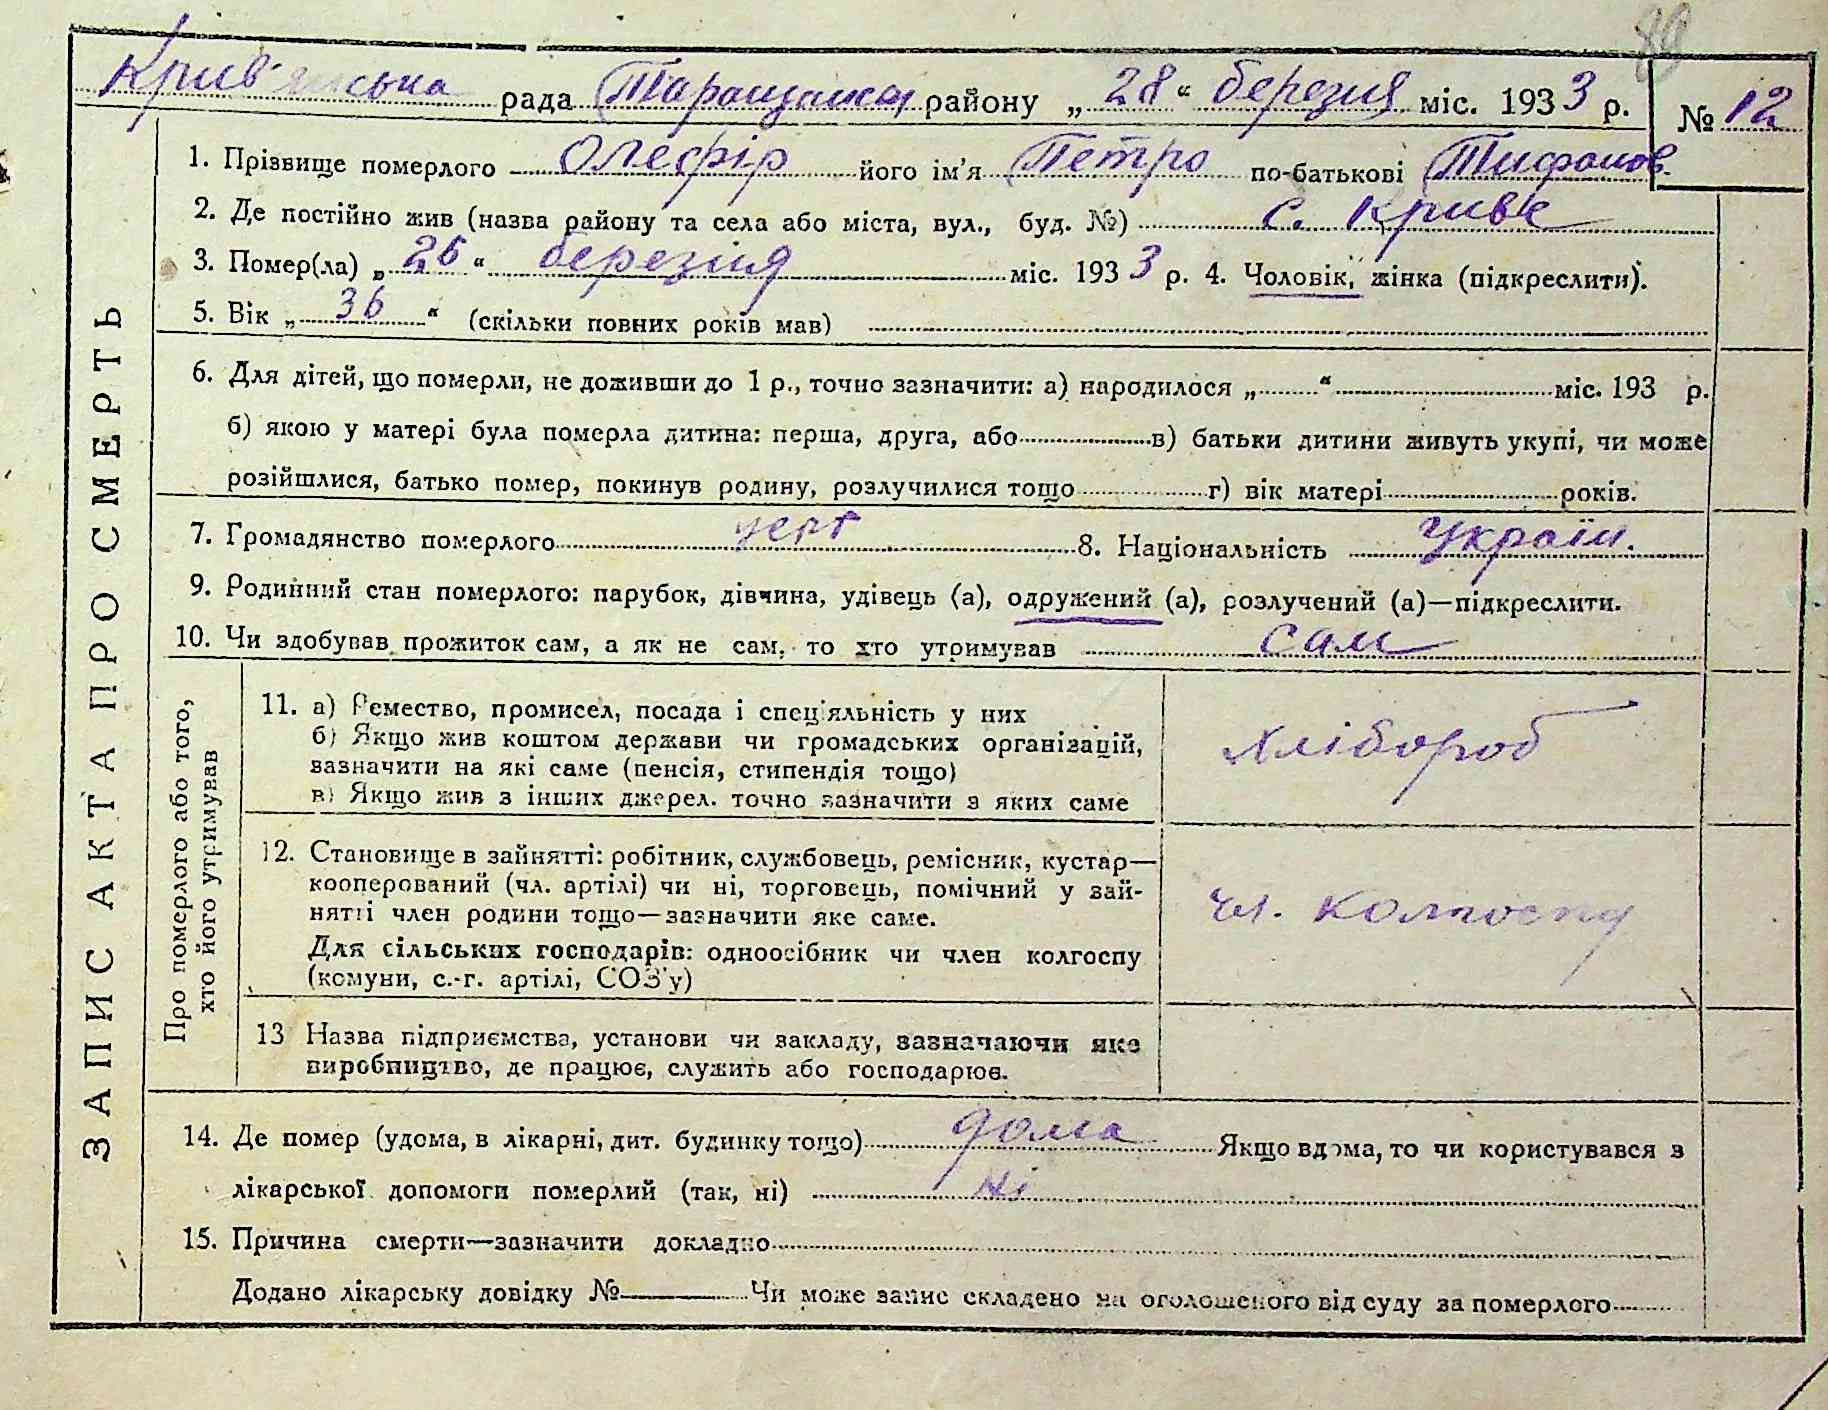 80
Крив'янська рада Таращанськ району „28“ березня міс. 1933 р. № 12
1. Прізвище померлого Олефір його ім'я Петро по-батькові Тифонов.
2. Де постійно жив (назва району та села або міста, вул., буд. №) с. Криве
3. Помер(ла) „26“ березня міс. 1933 р. 4. Чоловік, жінка (підкреслити).
5. Вік „36“ (скільки повних років мав)
6. Для дітей, що померли, не доживши до 1 р., точно зазначити: а) народилося „ “ міс. 193 р.
б) якою у матері була померла дитина: перша, друга, або в) батьки дитини живуть укупі, чи може
розійшлися, батько помер, покинув родину, розлучилися тощо г) вік матері років.
7. Громадянство померлого 8. Національність україн.
9. Родинний стан померлого: парубок, дівчина, удівець (а), одружений (а), розлучений (а)—підкреслити.
10. Чи здобував прожиток сам, а як не сам, то хто утримував сам
11. а) Ремество, промисел, посада і спеціяльність у них
б) Якщо жив коштом держави чи громадських організацій,
зазначити на які саме (пенсія, стипендія тощо)
в) Якщо жив з інших джерел, точно зазначити з яких саме
хлібороб
12. Становище в зайнятті: робітник, службовець, ремісник, кустар—
кооперований (чл. артілі) чи ні, торговець, помічний у зай-
нятті член родини тощо—зазначити яке саме.
Для сільських господарів: одноосібник чи член колгоспу
(комуни, с.-г. артілі, СОЗ'у)
чл. колгоспу
13 Назва підприємства, установи чи закладу, зазначаючи яке
виробництво, де працює, служить або господарює.
14. Де помер (удома, в лікарні, дит. будинку тощо) дома Якщо вдома, то чи користувався з
лікарської допомоги померлий (так, ні) ні
15. Причина смерти—зазначити докладно
Додано лікарську довідку № Чи може запис складено на оголошеного від суду за померлого
ЗАПИС АКТА ПРО СМЕРТЬ
Про померлого або того,
хто його утримував